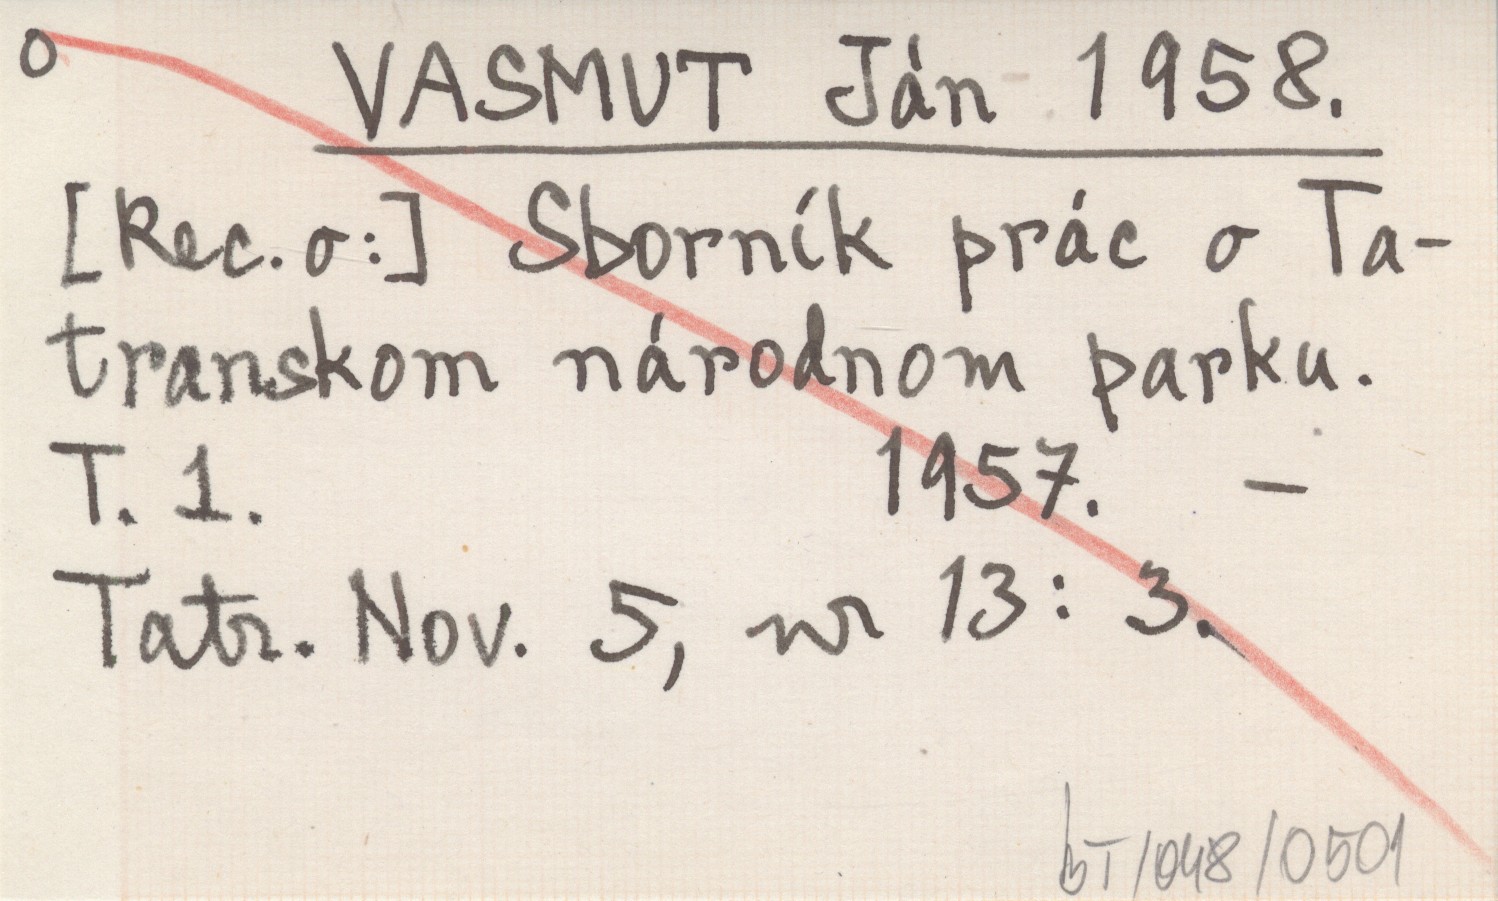 o VASMUT Ján 1958.
[Rec. o:] Sborník prác o Ta-
transkom národnom parku.
T. 1. 1957. –
Tatr. Nov. 5, nr 13: 3.
bT/048/0501